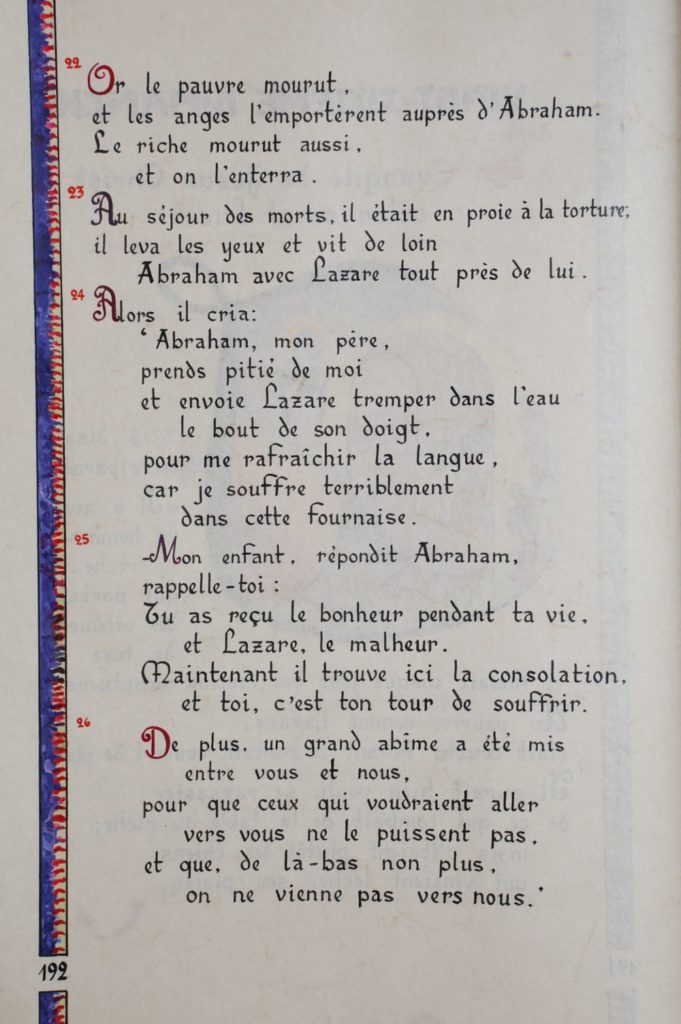 22
Or le pauvre mourut,
et les anges l'emportèrent auprès d'Abraham.
Le riche mourut aussi,
et on l'enterra.
23
Au séjour des morts, il était en proie à la torture;
il leva les yeux et vit de loin
Abraham avec Lazare tout près de lui.
24
Alors il cria:
‘Abraham, mon père,
prends pitié de moi
et envoie Lazare tremper dans l'eau
le bout de son doigt,
pour me rafraîchir la langue,
car je souffre terriblement
dans cette fournaise.
25
-Mon enfant, répondit Abraham,
rappelle-toi :
Tu as reçu le bonheur pendant ta vie,
et Lazare, le malheur.
Maintenant il trouve ici la consolation,
et toi, c'est ton tour de souffrir.
26
De plus, un grand abîme a été mis
entre vous et nous,
pour que ceux qui voudraient aller
vers vous ne le puissent pas,
et que, de là-bas non plus,
on ne vienne pas vers nous.’
192